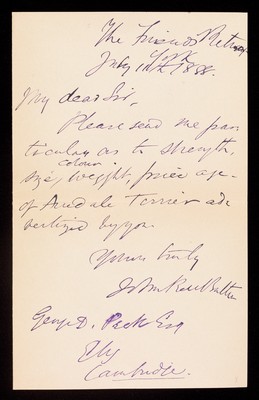 The Friends' Retreat
York
July 10th 1888.
My dear Sir,
Please send me par-
ticulars as to strength,
colour
size, weight, price age
of Airedale Terrier ad-
vertized by you.
Yours truly
John
George D. Peck Esq
Ely
Cambridge.